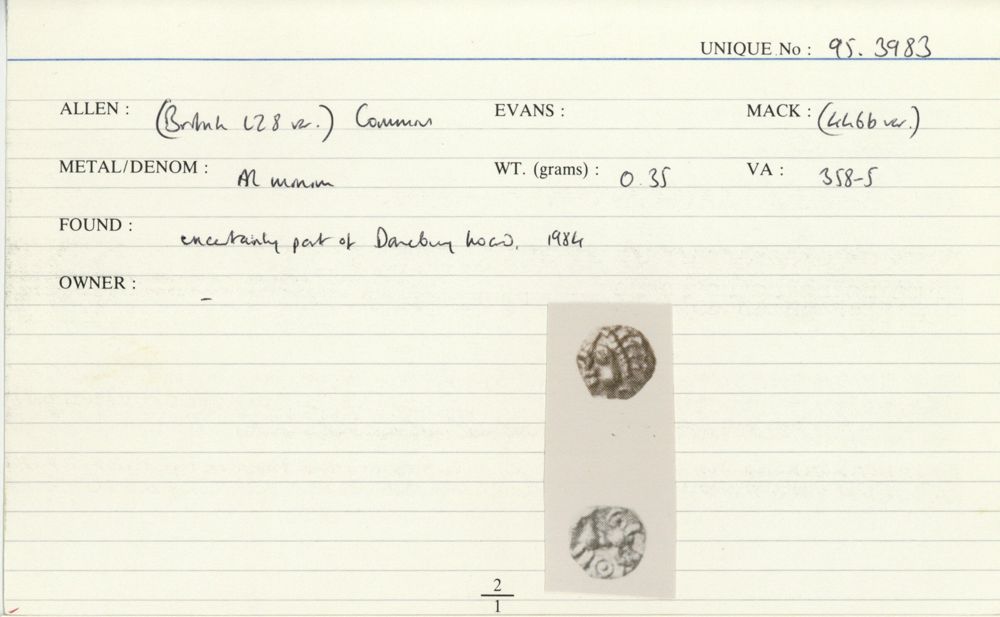 UNIQUE No : 95.3983
ALLEN : (British L28 var.) Commius EVANS : MACK : (446b var.)
METAL/DENOM : AR minim WT. (grams) : 0.35 VA : 358-5
FOUND : uncertainly part of Danebury hoard, 1984
OWNER : –
2
1